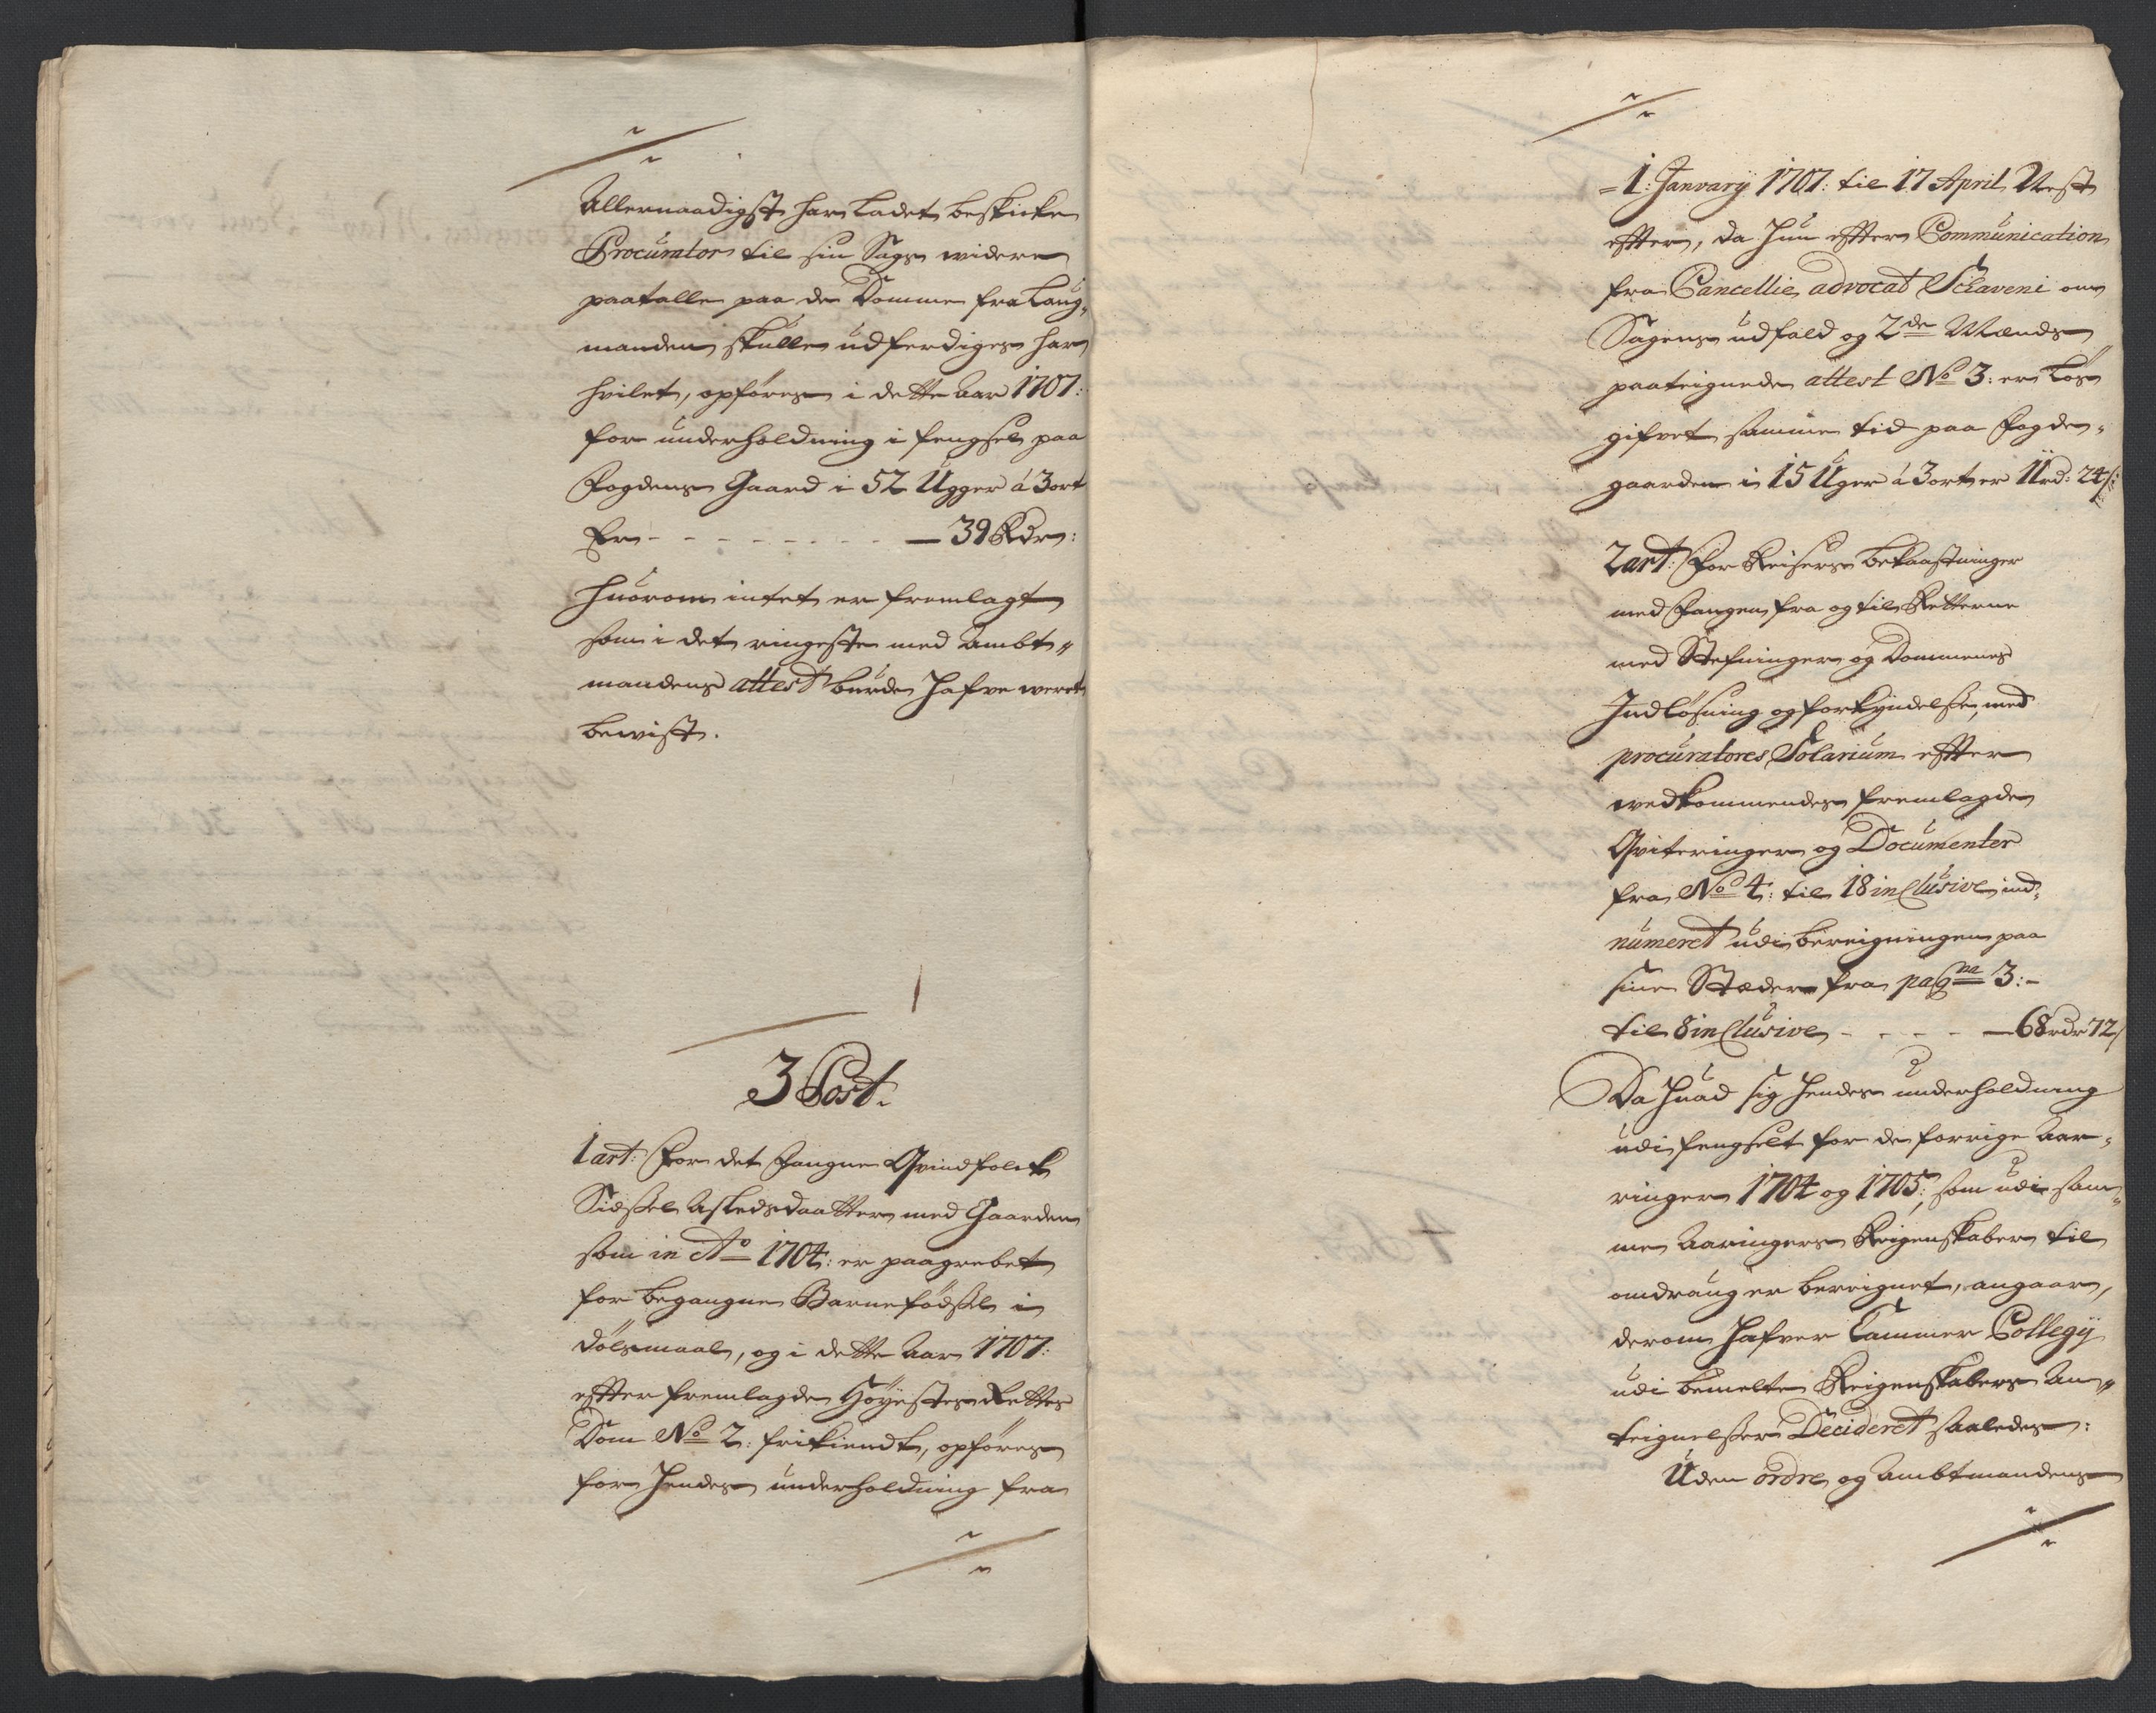 Allernaadigst har ladet beskicke
Procurator til sin Sags widere
paatalle paa de Domme fra Laug,,
manden skulle udferdiges har
hvilet, opføres i dette Aar 1707:
for underholdning i fengsel paa
Fogdens Gaard i 52 Ugger á 3 ort
Er - - - - - - - - - 39 Rdr:
huorom intet er fremlagt
som i det ringeste med Ambt,,
mandens attest burde hafve weret
bewist.
3 Post.
1 art: For det Fangne Qvindfolck
Sidsel Asledsdaatter med Gaarden
som in Ao 1704: er paagrebet
for begangne Barnefødsel i
dølsmaal, og i dette Aar 1707:
efter fremlagde Høyeste Rettes
Dom No 2: frikiendt, opføres
for hendes underholdning fra
= 1: Janvarij 1707: til 17 April Nest
efter, da hun efter Communication
fra Cancellie advocat Sclaveni om
Sagens udfald og 2de Mænds
paateignede attest No 3: er Løs
gifvet samme tid paa Fogden,,
gaarden i 15 Uger á 3 ort er 11 rd: 24 s:
2 art: For Reisers bekaastninger
med Fangen fra og til Retterne
med Stefninger og Dommenes
Indløsning og forkyndelse, med
procuratores Solarium efter
wedkommendes fremlagde
Qviteringer og Documenter
fra No 4: til 18 inclusive ind,,
numeret udi bereigningen paa
sine Stæder fra pagna 3: -
til 8 inclusive - - - - 68 rdr 72 s
Da huad sig hendes underholdning
udi fengselt for de forrige Aar,,
ringer 1704 og 1705: som udi sam,,
me Aaringers Reigenskaber til
omdraug er bereignet, angaar,
derom hafver Cammer Collegij
udi bemelte Reigenskabers An,,
teignelser Decideret saaledes:
Uden ordre og Ambtmandens